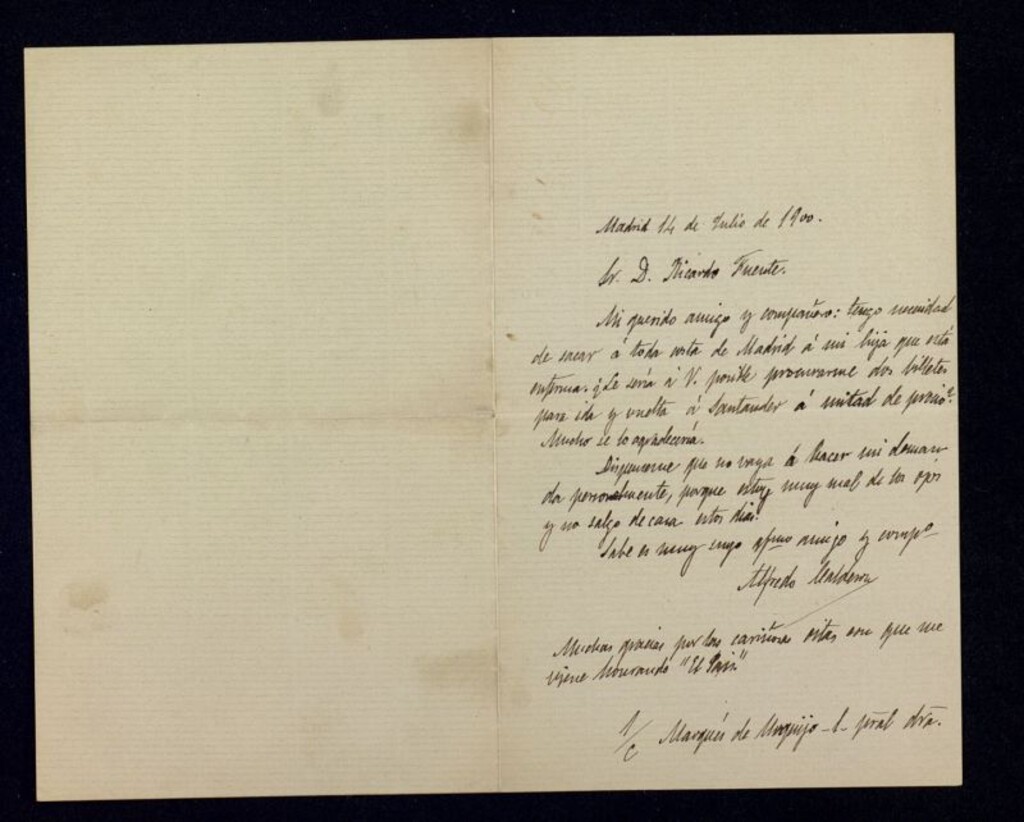 Madrid 14 de Julio de 1900.
Sr. D. Ricardo Fuente.
Mi querido amigo y compañero: tengo necesidad
de sacar á toda costa de Madrid á mi hija que está
enferma. ¿Le sería á V. posible procurarme dos billetes
para ida y vuelta á Santander á mitad de precio?
Mucho se lo agradecería.
Dispénseme que no vaya á hacer mi deman
da personalmente, porque estoy muy mal de los ojos
y no salgo de casa estos dias.
Sabe es muy suyo afmo amigo y compº
Alfredo Calderon
Muchas gracias por las cariñosas citas con que me
viene honrando "El Pais."
S/C Marqués de Urquijo - pral dra.